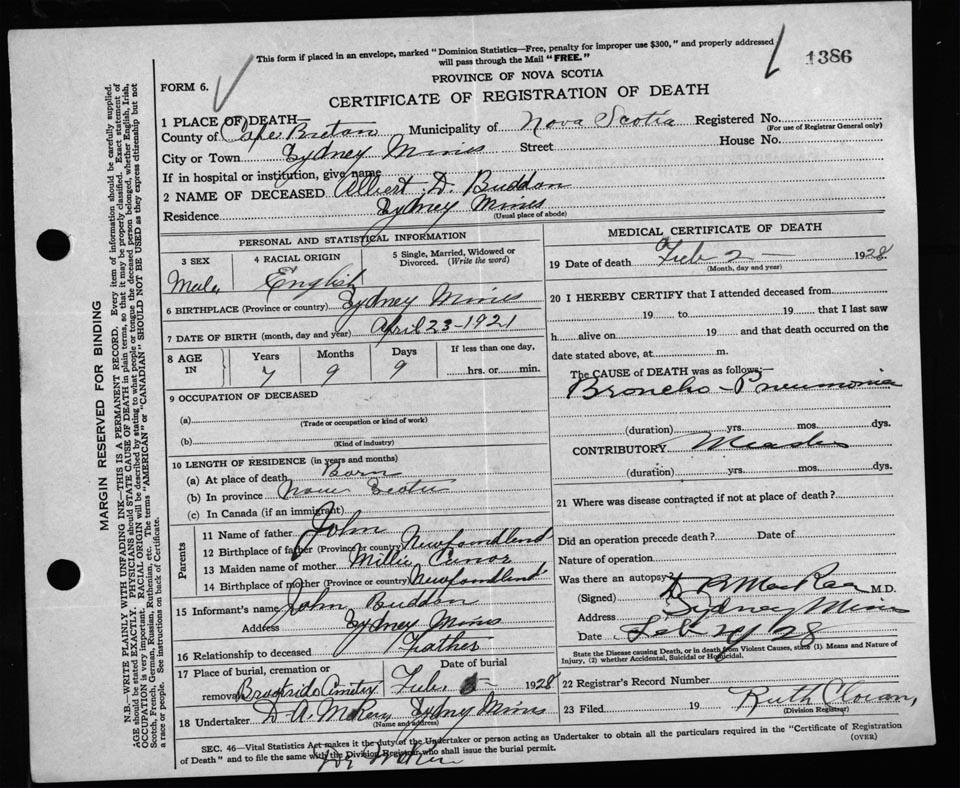 This form if placed in an envelope, marked "Dominion Statistics—Free, penalty for improper use $300," and properly addressed
will pass through the Mail "FREE."
1386
PROVINCE OF NOVA SCOTIA
FORM 6.
CERTIFICATE OF REGISTRATION OF DEATH
1 PLACE OF DEATH
County of Cape Breton Municipality of Nova Scotia Registered No.
(For use of Registrar General only)
City or Town Sydney Mines Street House No.
If in hospital or institution, give name
2 NAME OF DECEASED Albert D. Buddon
Residence Sydney Mines
(Usual place of abode)
PERSONAL AND STATISTICAL INFORMATION
3 SEX Male
4 RACIAL ORIGIN English
5 Single, Married, Widowed or Divorced. (Write the word)
6 BIRTHPLACE (Province or country) Sydney Mines
7 DATE OF BIRTH (month, day and year) April 23-1921
8 AGE IN Years Months Days If less than one day,
7 9 9 hrs. or min.
9 OCCUPATION OF DECEASED
(a)
(Trade or occupation or kind of work)
(b)
(Kind of industry)
10 LENGTH OF RESIDENCE (in years and months)
(a) At place of death Born
(b) In province Nova Scotia
(c) In Canada (if an immigrant)
Parents
11 Name of father John
12 Birthplace of father (Province or country) Newfoundland
13 Maiden name of mother Millie
14 Birthplace of mother (Province or country) Newfoundland
15 Informant's name John Buddon
Address Sydney Mines
16 Relationship to deceased Father
17 Place of burial, cremation or removal Brookside Cemetery
Date of burial Feb. 1928
18 Undertaker D. A. Sydney Mines
(Name and address)
MEDICAL CERTIFICATE OF DEATH
19 Date of death Feb 2 - 1928
(Month, day and year)
20 I HEREBY CERTIFY that I attended deceased from
19 to 19 that I last saw
h alive on 19 and that death occurred on the
date stated above, at m.
The CAUSE of DEATH was as follows:—
Broncho-Pneumonia
(duration) yrs. mos. dys.
CONTRIBUTORY Measles
(duration) yrs. mos. dys.
21 Where was disease contracted if not at place of death?
Did an operation precede death? Date of
Nature of operation
Was there an autopsy?
(Signed) D R MacRae M.D.
Address Sydney Mines
Date Feb 28
State the Disease causing Death, or in death from Violent Causes, state (1) Means and Nature of
Injury, (2) whether Accidental, Suicidal or Homicidal.
22 Registrar's Record Number
23 Filed 19 Ruth
(Division Registrar)
SEC. 46—Vital Statistics Act makes it the duty of the Undertaker or person acting as Undertaker to obtain all the particulars required in the "Certificate of Registration
of Death" and to file the same with the Division Registrar who shall issue the burial permit.
(OVER)
MARGIN RESERVED FOR BINDING
N.B.—WRITE PLAINLY WITH UNFADING INK—THIS IS A PERMANENT RECORD. Every item of information should be carefully supplied.
AGE should be stated EXACTLY. PHYSICIANS should STATE CAUSE OF DEATH in plain terms, so that it may be properly classified. Exact statement of
OCCUPATION is very important. RACIAL ORIGIN will be described by stating to what people or tongue the deceased person belonged, whether English, Irish,
Scotch, French, German, Russian, Ruthenian, etc. The terms "AMERICAN" or "CANADIAN" SHOULD NOT BE USED as they express citizenship but not
a race or people. See instructions on back of Certificate.